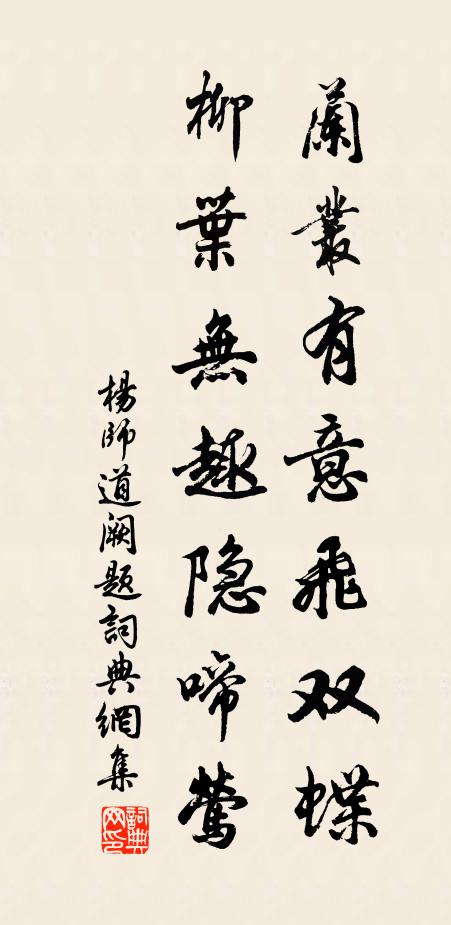 蘭叢有意飛双蝶
柳葉無趣隐啼鶯
楊師道阙題詞典網集
詞典网印